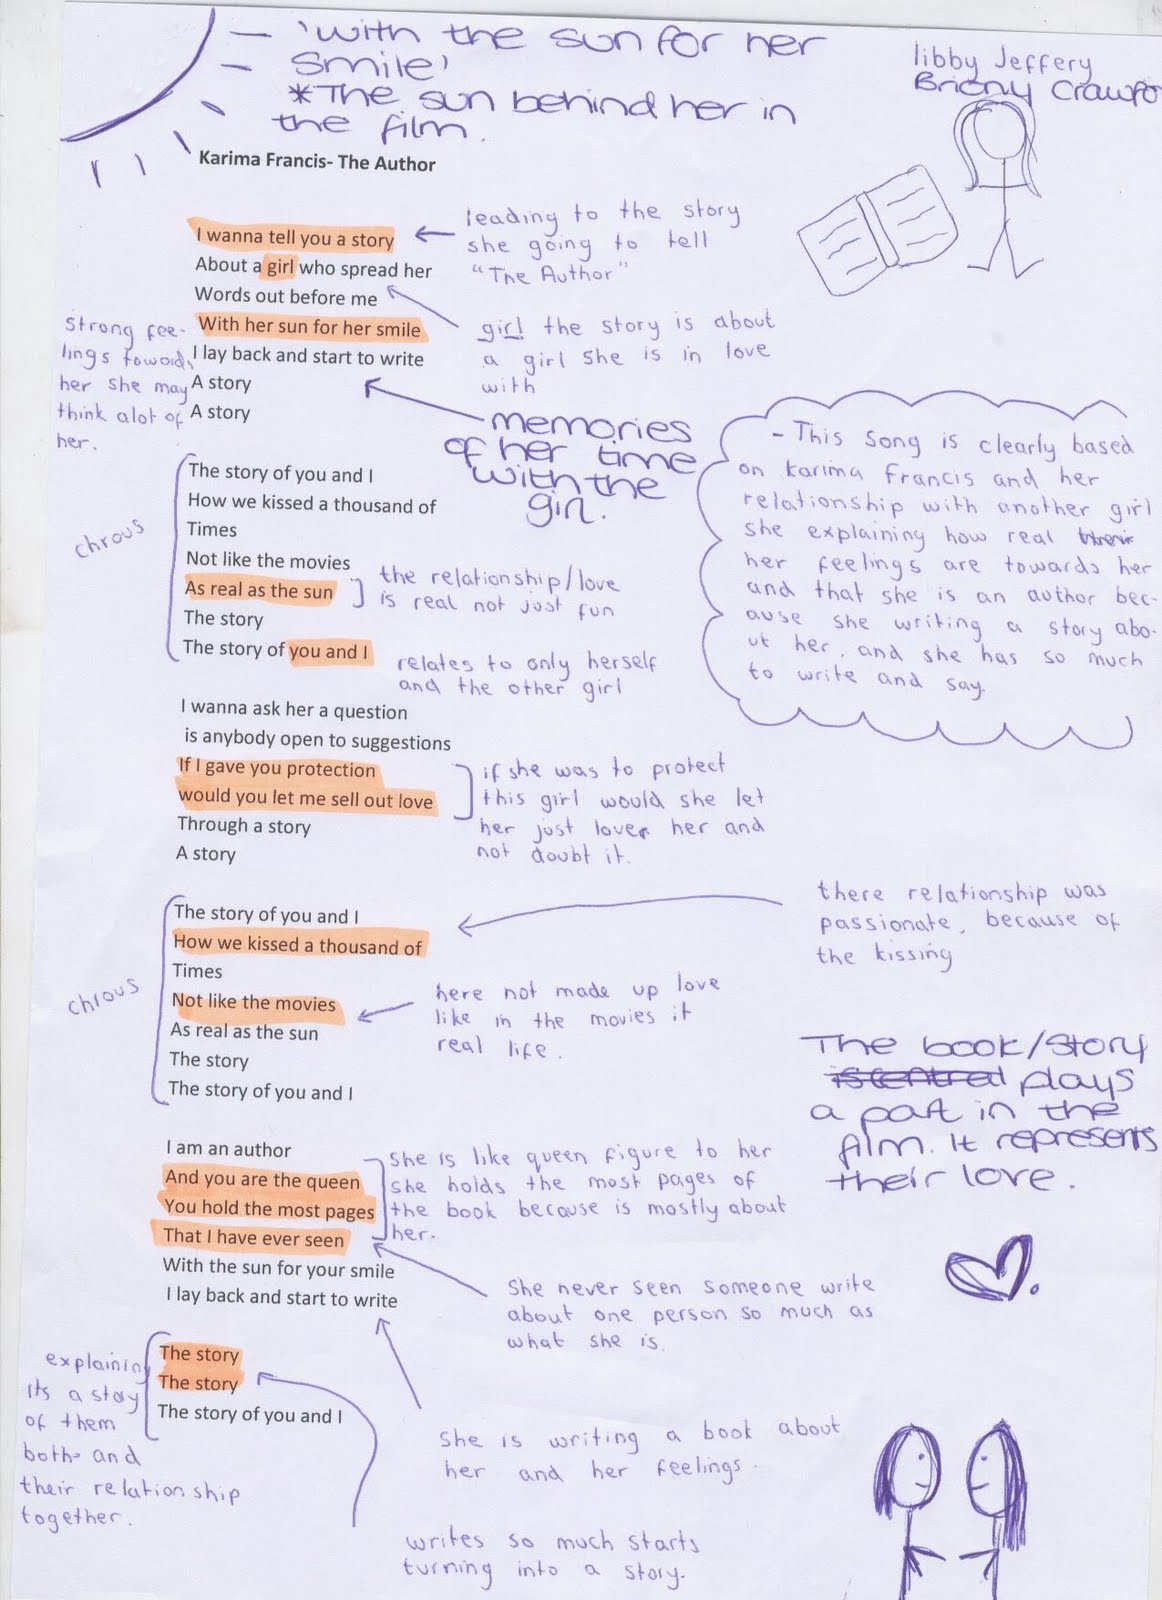 'with the sun for her
smile'
*The sun behind her in
the film.
libby Jeffery
Briony Crawfo
Karima Francis- The Author
I wanna tell you a story
About a girl who spread her
Words out before me
With her sun for her smile
I lay back and start to write
A story
A story
leading to the story
she going to tell
"The Author"
girl the story is about
a girl she is in love
with
strong fee-
lings towards
her she may
think alot of
her.
memories
of her time
with the
girl.
The story of you and I
How we kissed a thousand of
Times
Not like the movies
As real as the sun
The story
The story of you and I
chrous
the relationship/love
is real not just fun
relates to only herself
and the other girl
- This song is clearly based
on Karima Francis and her
relationship with another girl
she explaining how real
her feelings are towards her
and that she is an author bec-
ause she writing a story abo-
ut her, and she has so much
to write and say.
I wanna ask her a question
is anybody open to suggestions
If I gave you protection
would you let me sell out love
Through a story
A story
if she was to protect
this girl would she let
her just lover her and
not doubt it.
The story of you and I
How we kissed a thousand of
Times
Not like the movies
As real as the sun
The story
The story of you and I
chrous
there relationship was
passionate, because of
the kissing
here not made up love
like in the movies it
real life.
The book/story
is central plays
a part in the
film. It represents
their love.
I am an author
And you are the queen
You hold the most pages
That I have ever seen
With the sun for your smile
I lay back and start to write
she is like queen figure to her
she holds the most pages of
the book because is mostly about
her.
She never seen someone write
about one person so much as
what she is.
The story
The story
The story of you and I
explaining
its a story
of them
both and
their relationship
together.
She is writing a book about
her and her feelings.
writes so much starts
turning into a story.